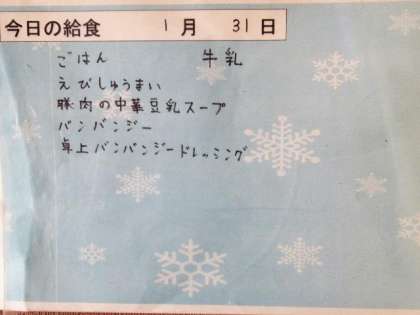 今日の給食 1月 31日
ごはん 牛乳
えびしゅうまい
豚肉の中華豆乳スープ
バンバンジー
卓上バンバンジードレッシング